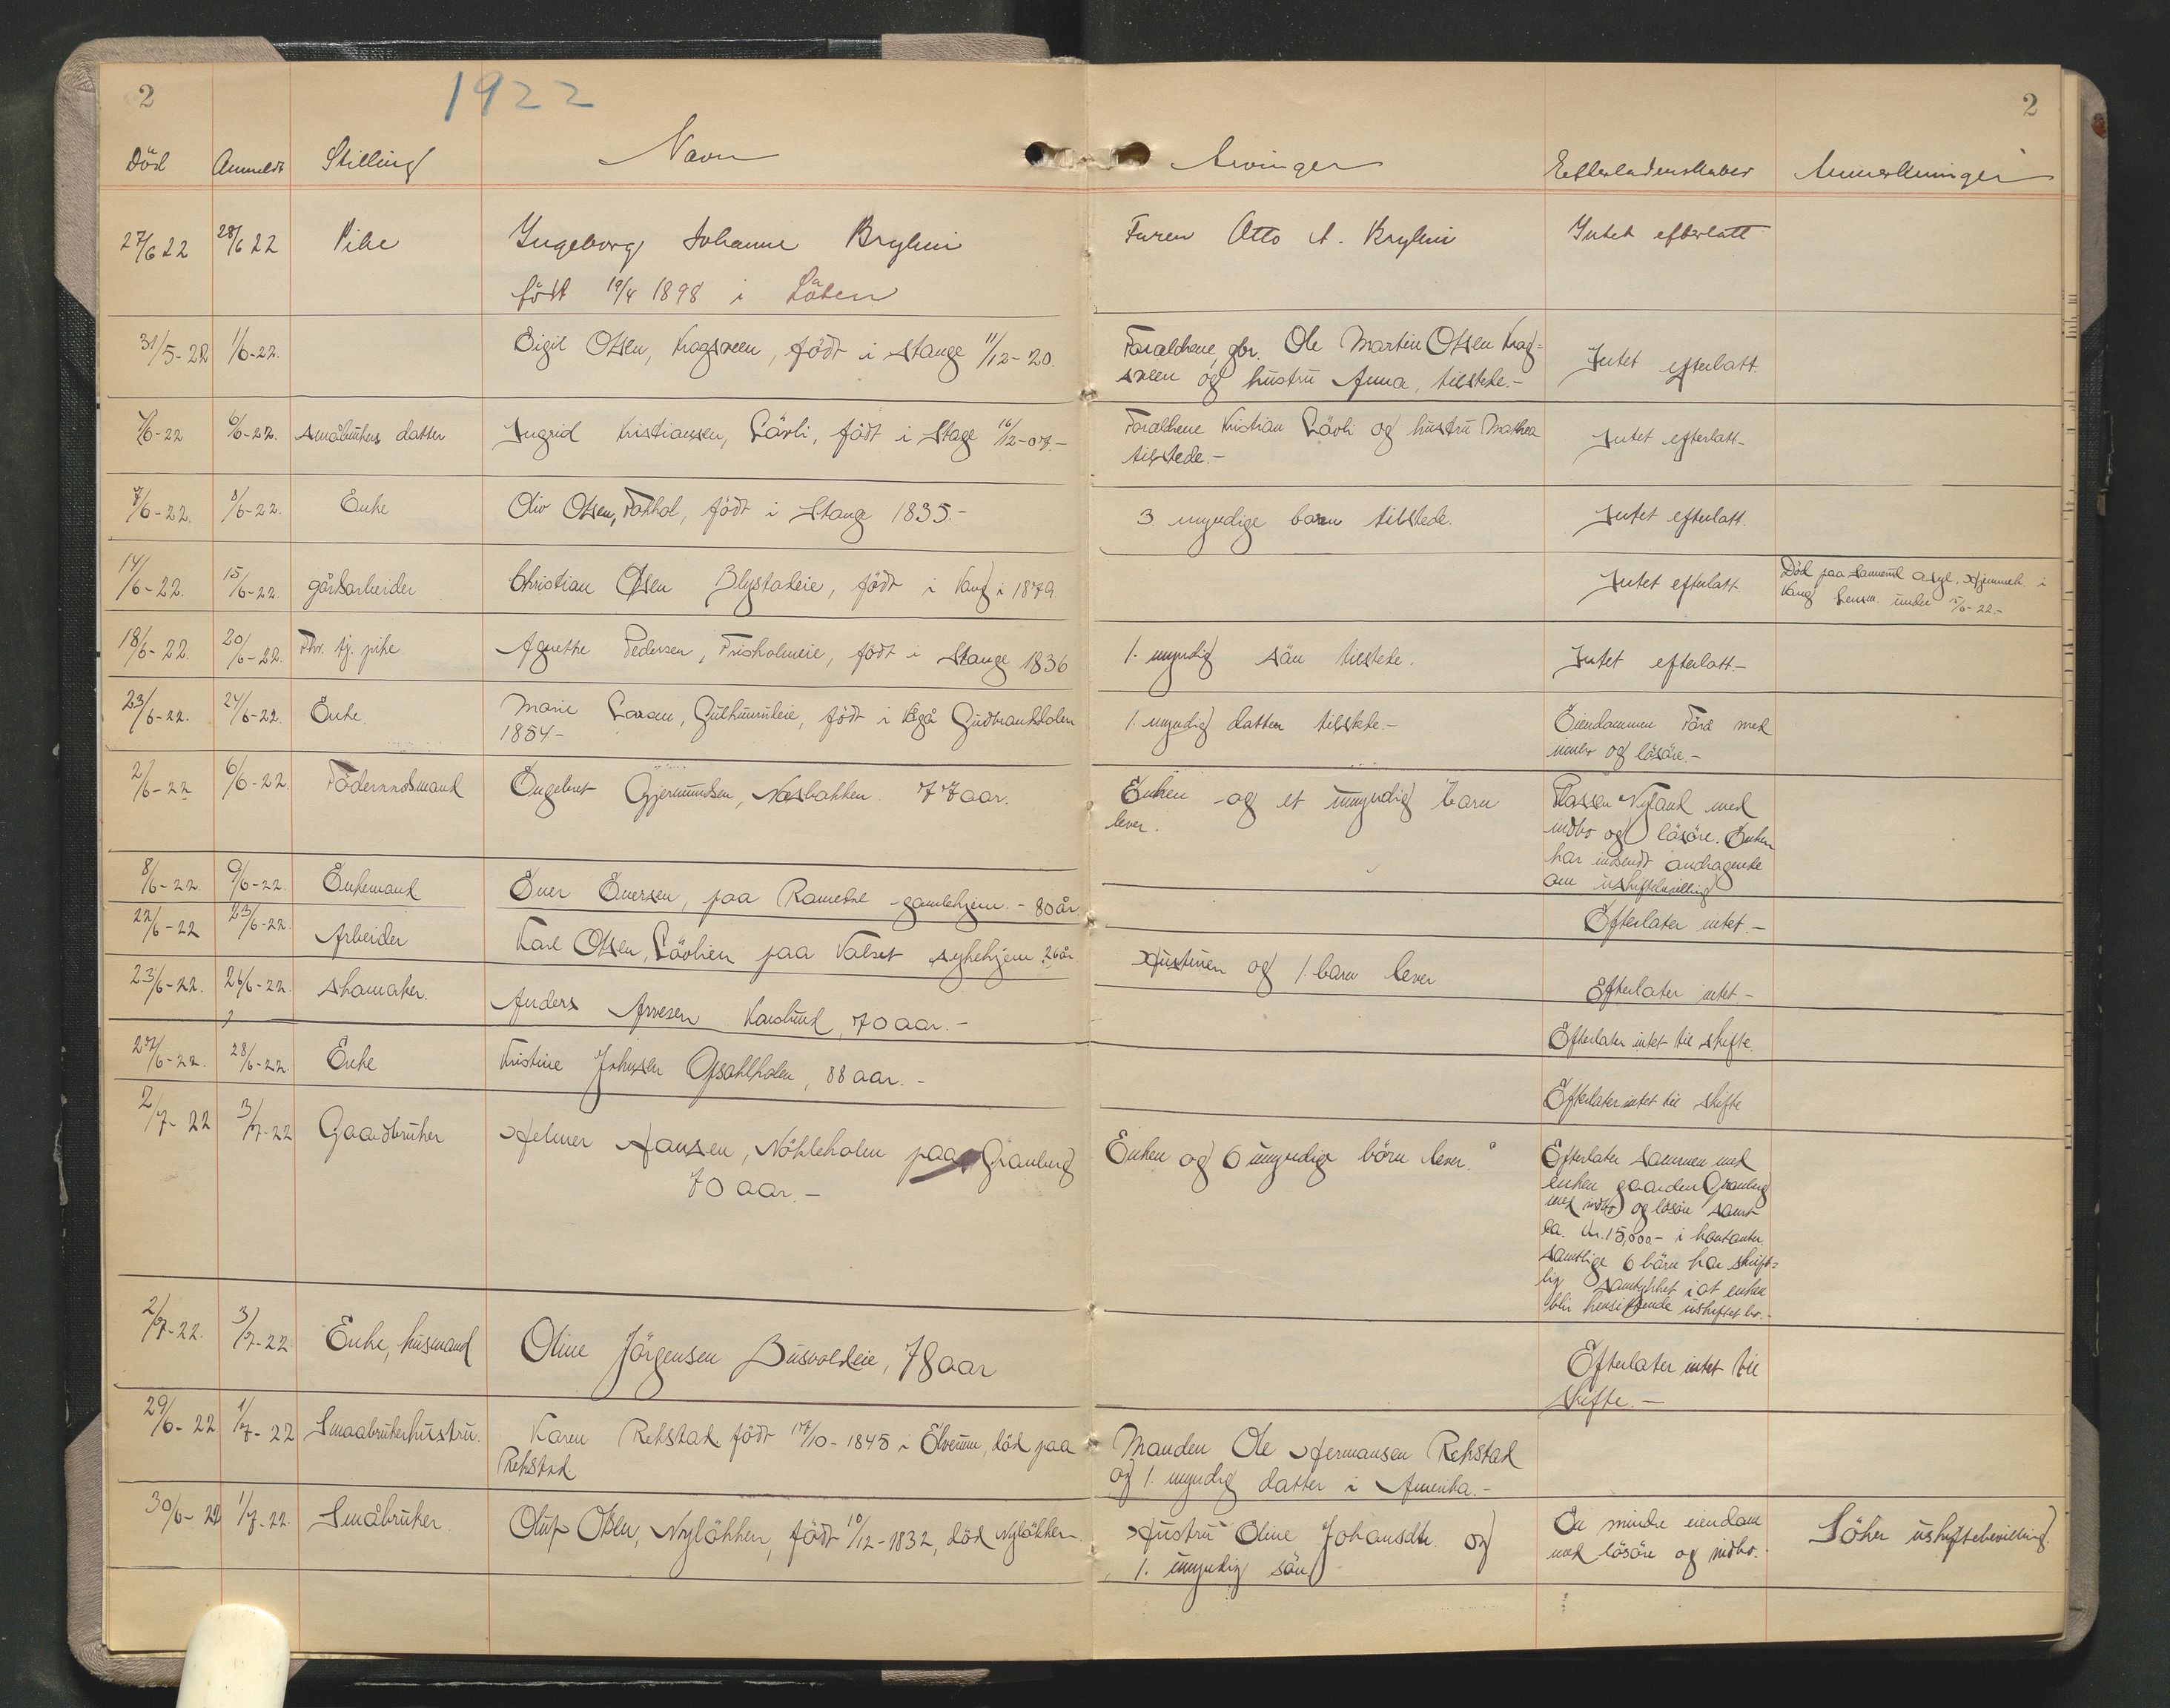 2
1922
2
Död Anmeldt Stilling Navn Arvinger Efterladenskaber Anmerkninger
27/6 22 28/6 22 Pike Ingeborg Johanne Bryhni Faren Otto A. Bryhni Intet efterlatt
född 19/4 1898 i Löten
31/5-22 1/6-22. Eigil Olsen, Kragsveen, födt i Stange 11/12-20. Forældrene, gbr. Ole Martin Olsen Krag= Intet efterlatt.
sveen og hustru Anna, tilstede.-
6/6-22. Småbrukers datter Ingrid Kristiansen, Lövli, födt i Stage 16/12-07.- Forældrene Kristian Lövli og hustru Mathea Intet efterlatt-
tilstede.-
7/6-22. 8/6-22. Enke Oliv Olsen, födt i Stange 1835.- 3 myndige barn tilstede. Intet efterlatt.
14/6-22. 15/6-22. gårdsarbeider Christian Olsen Blystadeie, födt i Vang i 1879. Intet efterlatt Död paa asyl. Hjemmeh. i
Vang lensm. under 15/6-22.-
18/6-22. 20/6-22. Fhv. tj. pike Agnethe Pedersen, Frisholmeie, födt i Stange 1836 1. myndig sön tilstede. Intet efterlatt.-
23/6-22. 24/6-22. Enke. Marie Larsen, födt i Vågå Gudbrandsdalen 1. myndig datter tilstede.- Eiendommen Törå med
1854- innbo og lösöre.-
2/6-22 6/6-22. Föderaadsmand Engebret Gjermundsen, Næsbakken. 77 aar. Enken og et umyndig barn Plassen Nyland med
lever. indbo og lösöre. Enken
har indsendt andragende
om uskiftebevilling
8/6-22. 9/6-22. Enkemand Even Evensen, paa Rameber gamlehjem.- 80 år Efterlater intet.-
22/6-22 23/6-22. Arbeider Karl Olsen, Lövlien paa Valset sykehjem 26 år. Hustruen og 1. barn lever Efterlater intet-
23/6-22. 26/6-22. Skomaker. Anders Arnesen Karslund, 70 aar.- Efterlater intet til skifte.
27/6-22. 28/6-22. Enke Kristine Johnsen Opsahlholen, 88 aar.- Efterlater intet til skifte
2/7-22 3/7-22 Gaardbruker Helmer Hansen, Nökleholm paa Granberg Enken og 6 myndige börn lever. Efterlater sammen med
70 aar.- enken gaarden Granberg
med indbo og lösöre samt
ca. kr. 15,000- i kontanter.
Samtlige 6 börn har skrift=
lig samtykket i at enken
blir hensittende i uskiftet bo.-
2/7-22. 3/7-22. Enke, husmand Oline Jörgensen Busvoldeie, 78 aar Efterlater intet til
skifte.-
29/6-22 1/7-22 Smaabrukerhustru. Karen Rekstad födt 17/10-1845 i Elverum, död paa Manden Ole Hermansen Rekstad
Rekstad og 1. myndig datter i Amerika.-
30/6-22 1/7-22. Småbruker. Oluf Olsen, Nylökken, födt 10/12-1832, död Nylökken. Hustru Oline Johansdtr. og En mindre eiendom Söker uskiftebevilling.
1. myndig sön med lösöre og indbo.